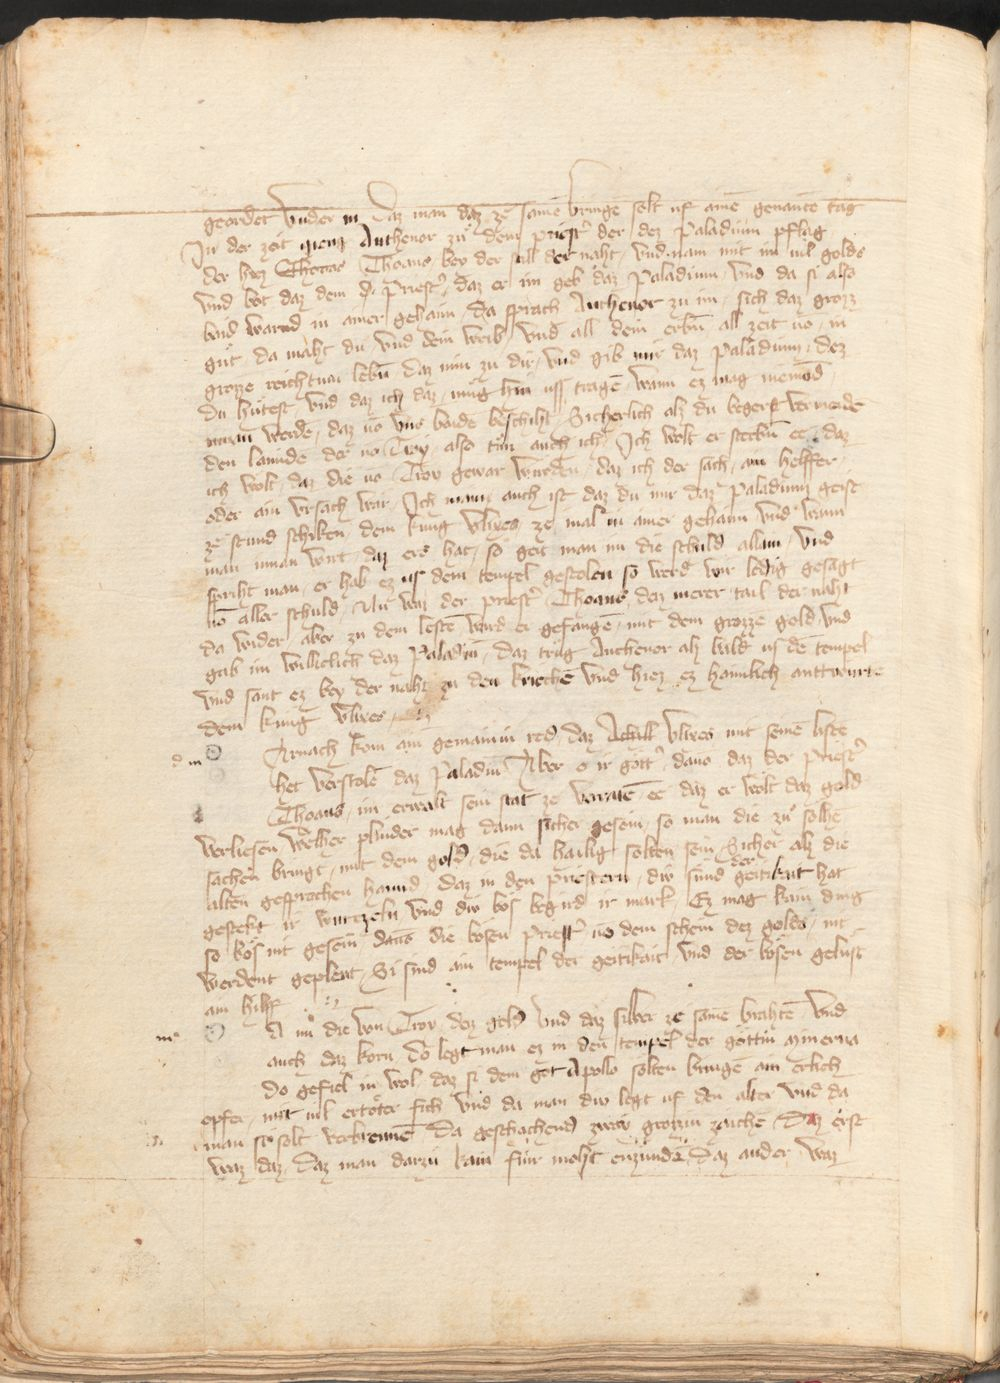 geordet vnder in Daz man daz ze samē bringe solt vf ainē genantē tag
In der zeit gieng Anthenor zu dem priestˀ der dez Paladium pflag
der hiez Thoans bey der still der naht vnd nam mit im vil goldes
vnd bot daz dem priestˀ daz er im geb daz Paladium vnd da si also
baid warnd in ainer gehaim da sprach Anthenor zu im sich daz grozz
gůt da maht du vnd dein weib vnd all dein erbn̄ all zeit vō in
grozze reichtum lebn̄ daz nim zu dir vnd gib mir daz Paladium dez
du hůtest vnd daz ich daz mug hin uss tragē wann ez mag niemād
innan werdē daz vō vns baidē beschiht Sicherlich alz du begerst vermeidē
den laimdē der vō Troy also tůn auch ich Ich wolt er sterbn̄ ee daz
ich wolt daz die vō Troy gewar wurden daz ich der sach ain helffer
oder ain vrsach wār Ich main auch ist daz du mir daz Paladium geist
ze stund schiken dem kung Vlixes ze mal in ainer gehaim vnd wann
man innan wirt daz ers hat so geit man im die schuld allain vnd
spricht man er hab ez us dem tempel gestolen so werd wir ledig gesagt
vō aller schuld Nu waz der priestˀ Thoans dez merer tail der naht
da wider aber zu dem lestē ward er gefangē mit dem grozzē gold vnd
gab im williclich daz Paladiū daz trůg Anthenor alz bald us dē tempel
vnd sant ez bey der naht zu den kriechē vnd hiez ez haimlich anttwurtē
dem kung Vlixes
Arnach kom ain gemainiu red daz Achill Vlixes mit seinē listē
het verstolē daz Paladiū Aber o ir gottˀ dauo daz der priestˀ
Thoans im erwalt sein stat ze verratē ee daz er wolt daz gold
verliesen welher plunder mag dann sicher gesein so man die zů solhē
sachen bringt mit dem gold die da hailig solten sein Sicher alz die
alten gesprochen hannd daz in den priestern diu sund der geitikait hat
gestekt ir wurtzeln vnd diu bos begird ir mark Ez mag kain ding
so bös nit gesein dauō die bösen priestˀ vō dem schein dez golds nit
werdent geplent Si sind ain tempel der geitikait vnd der bösen gelust
ain hilff
A nu die von Troy dez gold vnd daz silber ze samē brahtē vnd
auch daz korn do legt man ez in den tempel der göttin Minerua
Do gefiel in wol daz si dem got Apollo solten bringē ain erlich
opfer mit vil ertöter fich vnd da man diu legt uf den alter vnd da
man si solt verbrennē da geschachend zway groziu zaichē Daz erst
waz daz daz man darzu kain für moht enzündē Daz ander waz